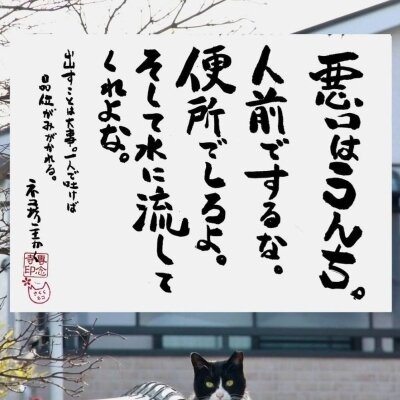 悪口はうんち。
人前でするな。
便所でしろよ。
そして水に流して
くれよな。
出すことは大事。一人で吐けば
品位がみがかれる。